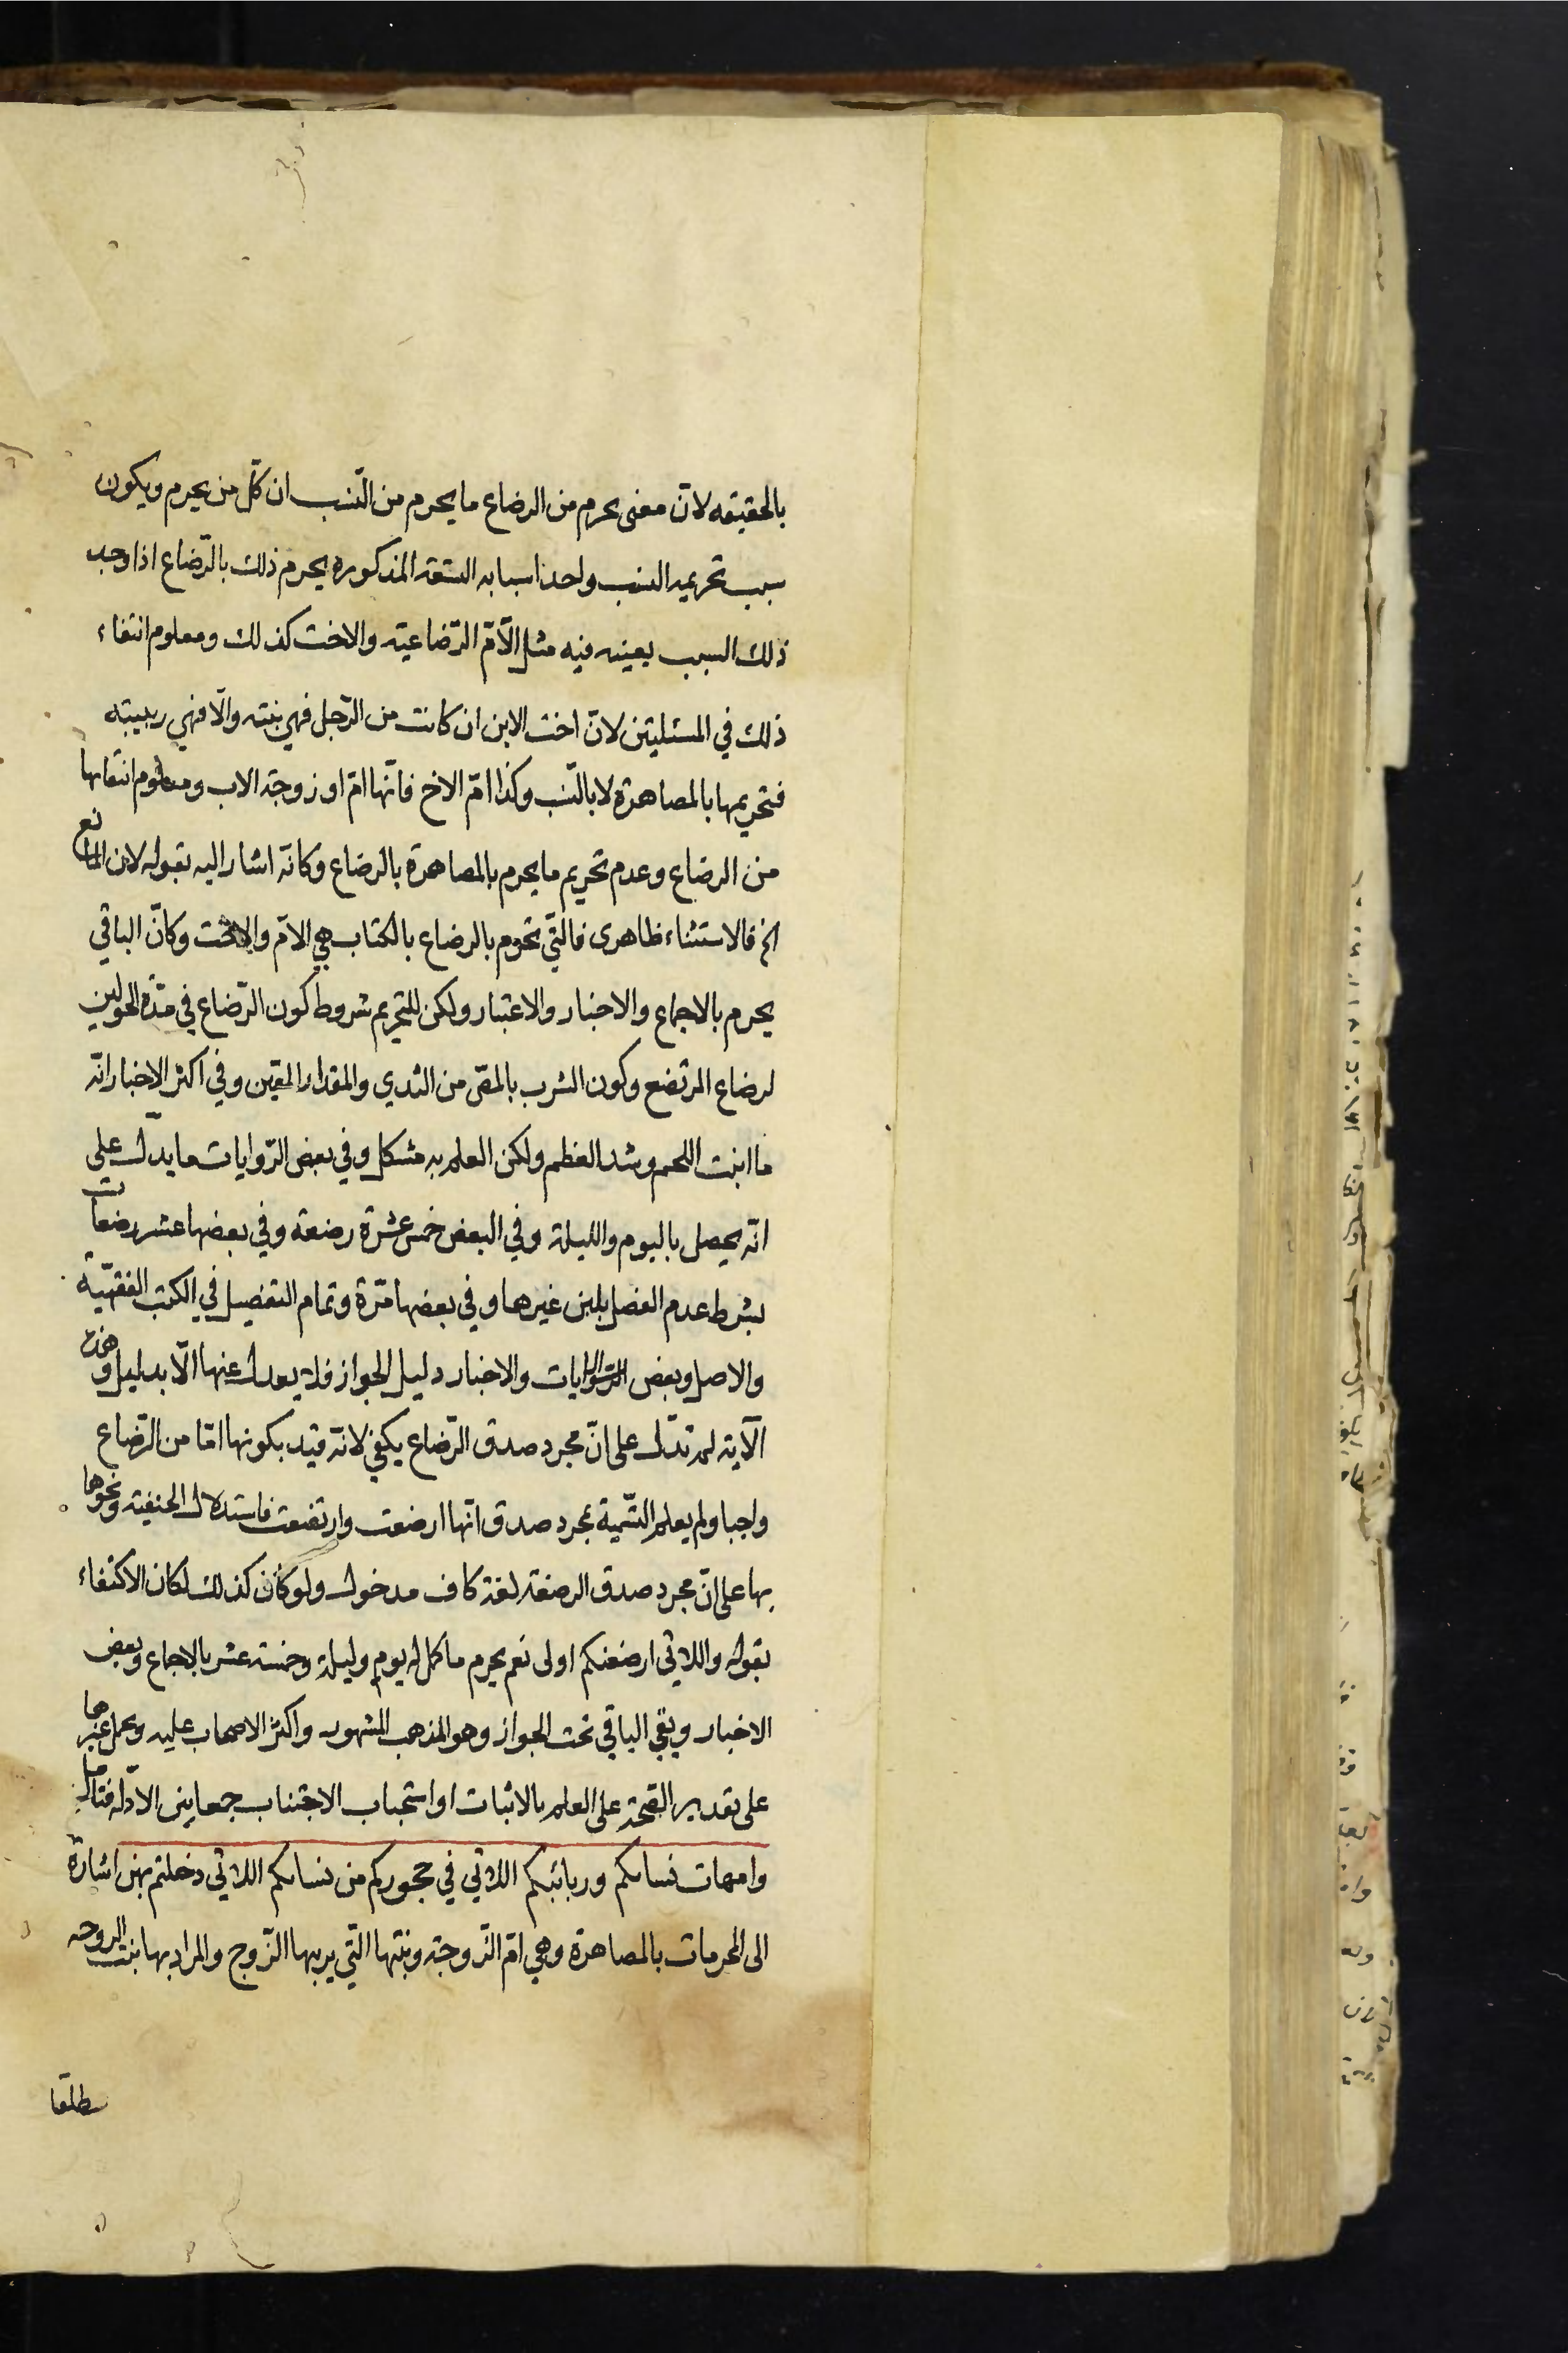 بالحقيقه لانّ معنى يحرم من الرضاع ما يحرم من النّسب ان كلّ من يحرم ويكون
سبب تحريمه النسب واحد اسبابه السبعة المذكوره يحرم ذلك بالرّضاع اذا وجد
ذلك السبب بعينه فيه مثل الامّ الرّضاعيّه والاخت كذلك ومعلوم انتفاء
ذلك في المسئلتين لانّ اخت الابن ان كانت من الرّجل فهي بنته والّا فهي ربيبته
فتحريمها بالمصاهرة لا بالنّسب وكذا امّ الاخ فانّها امّ او زوجة الاب ومعلوم انتفائها
من الرضاع وعدم تحريم ما يحرم بالمصاهرة بالرضاع وكانّه اشار اليه بقوله لان المانع
الخ فالاستثناء ظاهرى فالتي تحرم بالرضاع بالكتاب هي الامّ والاخت وكانّ الباقي
يحرم بالاجماع والاخبار والاعتبار ولكن للتحريم شروط كون الرّضاع في مدّة الحولين
لرضاع المرتضع وكون الشرب بالمصّ من الثدي والمقدار المعين وفي اكثر الاخبار انّه
ما انبت اللحم وشد العظم ولكن العلم به مشكل وفي بعض الرّوايات ما يدلّ على
انّه يحصل باليوم والليلة وفي البعض خمس عشرة رضعة وفي بعضها عشر رضعات
بشرط عدم الفصل بلبن غيرها وفي بعضها مرّة وتمام التفصيل في الكتب الفقهيّة
والاصل وبعض الرّوايات والاخبار دليل الجواز فلا يعدل عنها الّا بدليل وهذه
الآية لم تدلّ على انّ مجرد صدق الرّضاع يكفي لانّه قيد بكونها امّا من الرّضاع
واجبا ولم يعلم التّسمية بمجرد صدق انّها ارضعت وارتضعت فاستدلال الحنفية ونحوها
بها على انّ مجرد صدق الرضعة لغة كاف مدخول ولو كان كذلك لكان الاكتفاء
بقوله واللاتي ارضعنكم اولى نعم يحرم ما كمل له يوم وليلة وخمسة عشر بالاجماع وبعض
الاخبار وبقي الباقي تحت الجواز وهو المذهب المشهور واكثر الاصحاب عليه ويحمل غيرها
على تقدير الصّحّة على العلم بالاثبات او استحباب الاجتناب جمعا بين الادّلة فتامل
وامهات نسائكم وربائبكم اللاتي في حجوركم من نسائكم اللاتي دخلتم بهن اشارة
الى المحرمات بالمصاهرة وهي امّ الزّوجة وبنتها التّي يربيها الزّوج والمراد بها بنت الزوجه
مطلقا